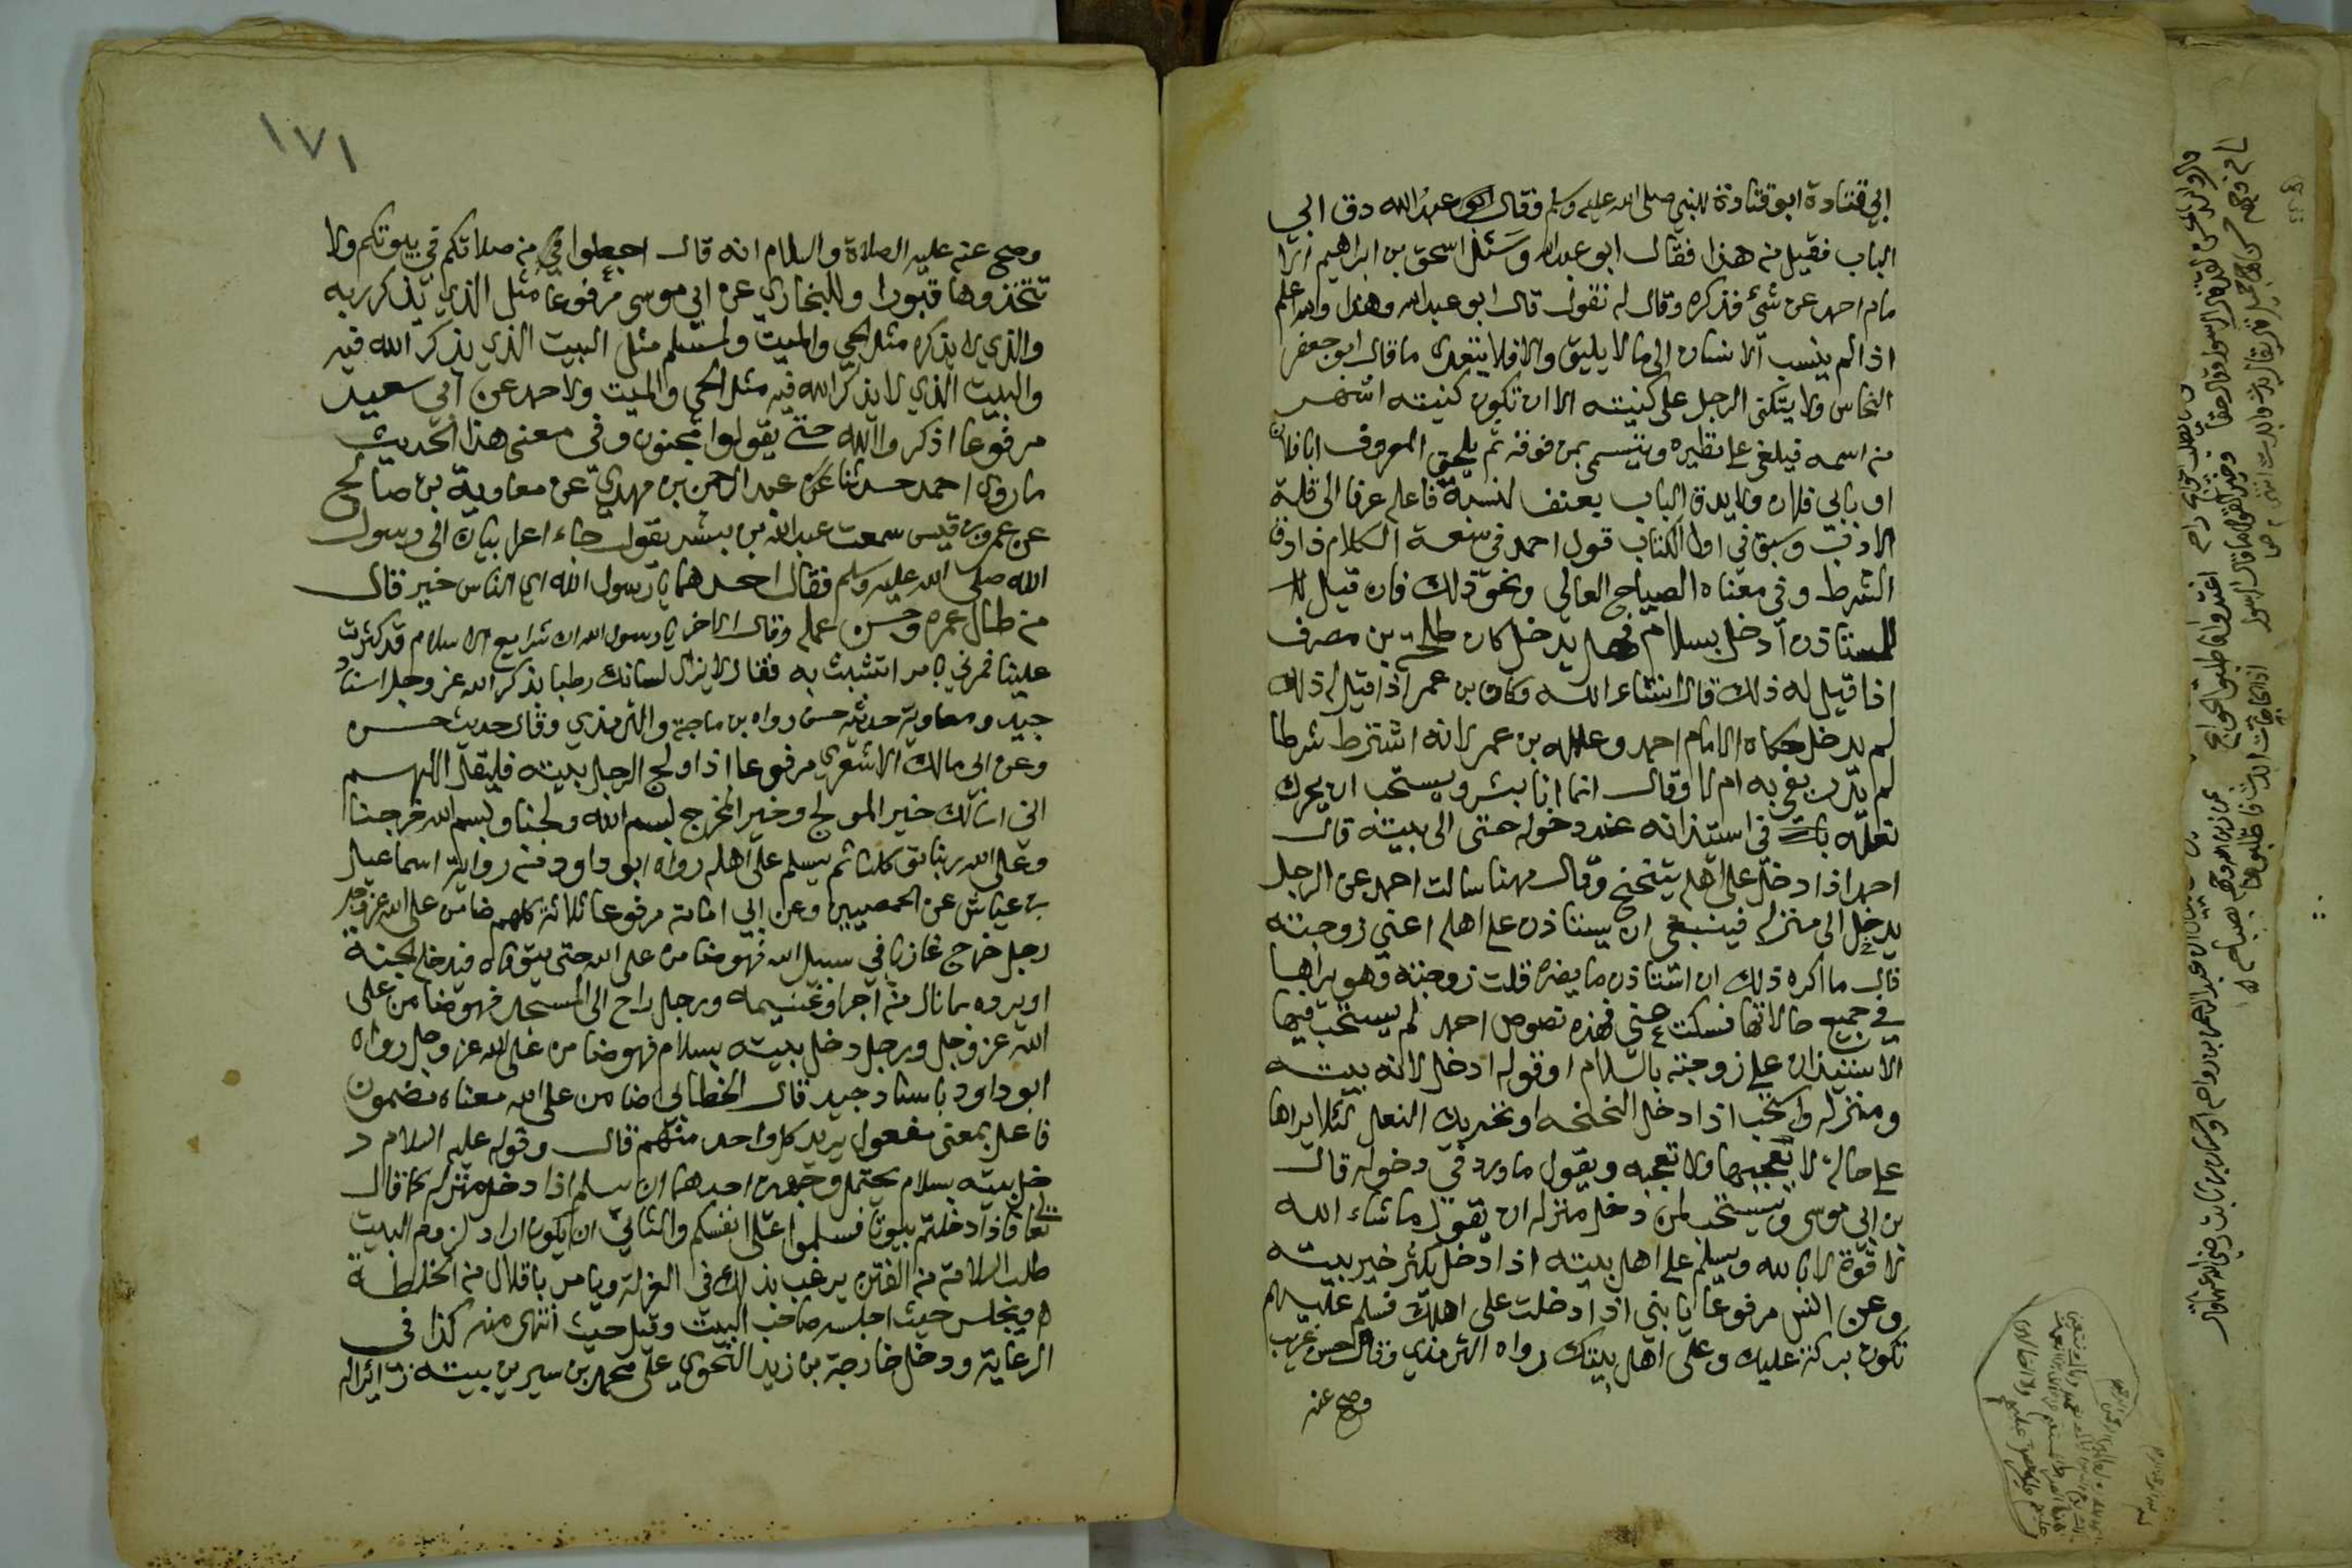 ابي قتادة ابو قتادة للنبي صلى الله عليه وسلم وقال ابو عبد الله دق ابي
الباب فقيل من هذا فقال ابو عبد الله وسئل اسحق بن ابراهيم انا
مام احمد عن شئ فذكره وقال له نقول قال ابو عبد الله وهذا والله اعلم
اذا لم ينسب الانسان الى ما لا يليق والا فلا يتعدى ما قال ابو جعفر
النحاس ولا يتكنى الرجل على كنيته الا ان تكون كنيته اشهر
من اسمه فيكنى على نظيره ويتسمى لمن فوقه ثم يلحق المعروف ابا فلان
او بابي فلان ولا يدق الباب بعنف لنسبة فاعله عرفا الى قلة
الادب وسبق في اول الكتاب قول احمد في الكلام ذا دق
الشرط وفي معناه الصياح العالي ونحو ذلك فان قيل
للمستاذن ادخل بسلام فهل يدخل كان طلحة بن مصرف
اذا قيل له ذلك قال ان شاء الله وكان بن عمر اذا قيل له ذلك
لم يدخل حكاه الامام احمد وعلله بن عمر لانه اشترط شرطا
لم يدر يفي به ام لا وقال انما انا بشر ويستحب ان يحرك
نعله في استئذانه عند دخوله حتى الى بيته قال
احمد اذا دخل على اهله يتنحنح وقال مهنا سالت احمد عن الرجل
يدخل الى منزله فينبغي ان يستاذن على اهله اعني زوجته
قال ما اكره ذلك ان استاذن ما يضره قلت زوجته وهو يراها
في جميع حالاتها فسكت عني فهذه نصوص احمد لم يستحب فيها
الاستئذان على زوجته بالسلام او قوله ادخل لانه بيته
ومنزله واستحب اذا دخل النحنحه او تحريك النعل لئلا يراها
على حالة لا تعجبها ولا تعجبه ويقول ما ورد في دخوله قال
بن ابي موسى ويستحب لمن دخل منزله ان يقول ما شاء الله
لا قوة الا بالله ويسلم على اهل بيته اذا دخل يكثر خير بيته
وعن انس مرفوعا يا بني اذا دخلت على اهلك فسلم عليهم
تكون بركة عليك وعلى اهل بيتك رواه الترمذي وقال حسن غريب
وصح عنه
١٧١
وصح عنه عليه الصلاة والسلام انه قال اجعلوا من صلاتكم في بيوتكم ولا
تتخذوها قبورا وللبخاري عن ابي موسى مرفوعا مثل الذي يذكر ربه
والذي لا يذكره مثل الحي والميت ولمسلم مثل البيت الذي يذكر الله فيه
والبيت الذي لا يذكر الله فيه مثل الحي والميت ولاحمد عن ابي سعيد
مرفوعا اذكروا الله حتى يقولوا مجنون وفي معنى هذا الحديث
ما روى احمد حدثنا عن عبد الرحمن بن مهدي عن معاوية بن صالح
عن عمرو بن قيس سمعت عبد الله بن بشر يقول جاء اعرابيان الى رسول
الله صلى الله عليه وسلم فقال احدهما يا رسول الله اي الناس خير قال
من طال عمره وحسن عمله وقال الاخر يا رسول الله ان شرايع الاسلام قد كثرت
علينا فمرني بامر اتشبث به فقال لا يزال لسانك رطبا بذكر الله عز وجل اسناد
جيد ومعاوية حديثه حسن رواه بن ماجة والترمذي وقال حديث حسن
وعن ابي مالك الاشعري مرفوعا اذا ولج الرجل بيته فليقل اللهم
اني اسألك خير المولج وخير المخرج بسم الله ولجنا وبسم الله خرجنا
وعلى الله ربنا توكلنا ثم يسلم على اهله رواه ابو داود من رواية اسماعيل
بن عياش عن الحمصيين وعن ابي امامة مرفوعا ثلاثة كلهم ضامن على الله عز وجل
رجل خرج غازيا في سبيل الله فهو ضامن على الله حتى يتوفاه فيدخله الجنة
او يرده بما نال من اجر او غنيمه ورجل راح الى المسجد فهو ضامن على
الله عز وجل ورجل دخل بيته بسلام فهو ضامن على الله عز وجل رواه
ابو داود باسناد جيد قال الخطابي ضامن على الله معناه مضمون
فاعل بمعنى مفعول يريد كل واحد منهم قال وقوله عليه السلام د
خل بيته بسلام يحتمل وجهين احدهما ان يسلم اذا دخل منزله كما قال
تعالى فاذا دخلتم بيوتا فسلموا على انفسكم والثاني ان يكون اراد لزوم البيت
طلب السلامة من الفتن يرغب بذلك في العزلة ويامر باقلال من الخلطة
ويجلس حيث اجلسه صاحب البيت وقيل حيث انتهى منه كذا في
الرعاية ودخل خارجة بن زيد النحوي على محمد بن سيرين بيته زائرا له